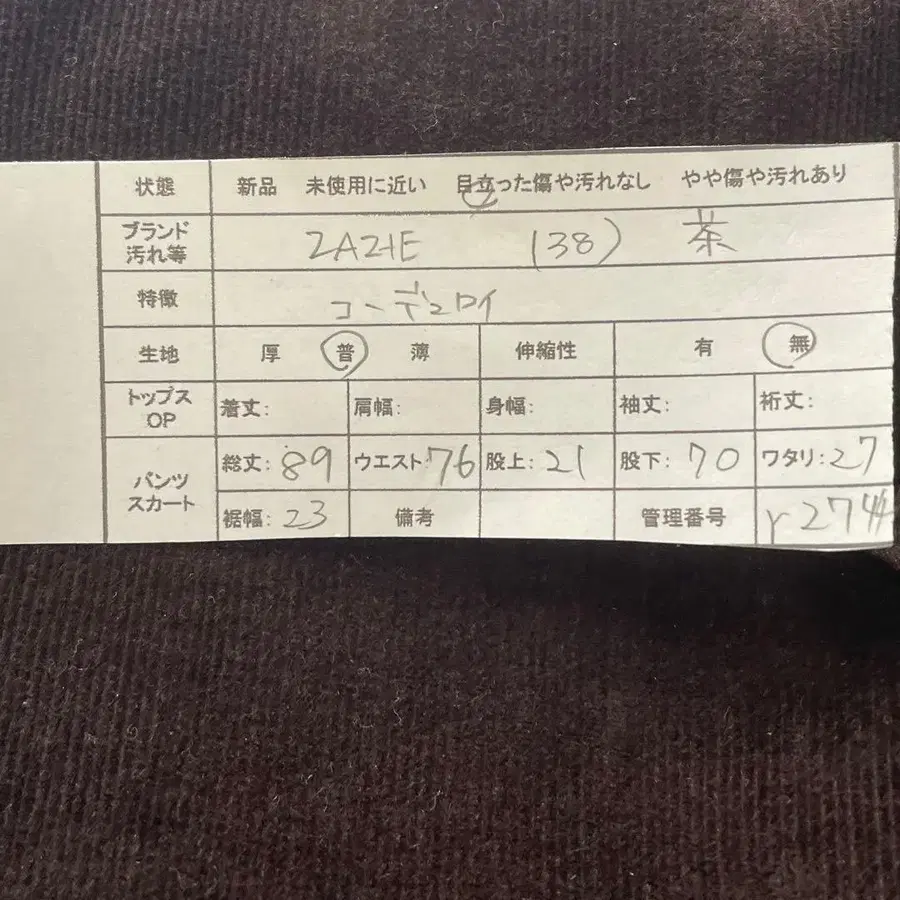 状態 新品 未使用に近い 目立った傷や汚れなし やや傷や汚れあり
ブランド
汚れ等 ZAZIE (38) 茶
特徴 コーデュロイ
生地 厚 普 薄 伸縮性 有 無
トップス
OP 着丈: 肩幅: 身幅: 袖丈: 裄丈:
パンツ
スカート
総丈: 89 ウエスト: 76 股上: 21 股下: 70 ワタリ: 27
裾幅: 23 備考 管理番号 r2744